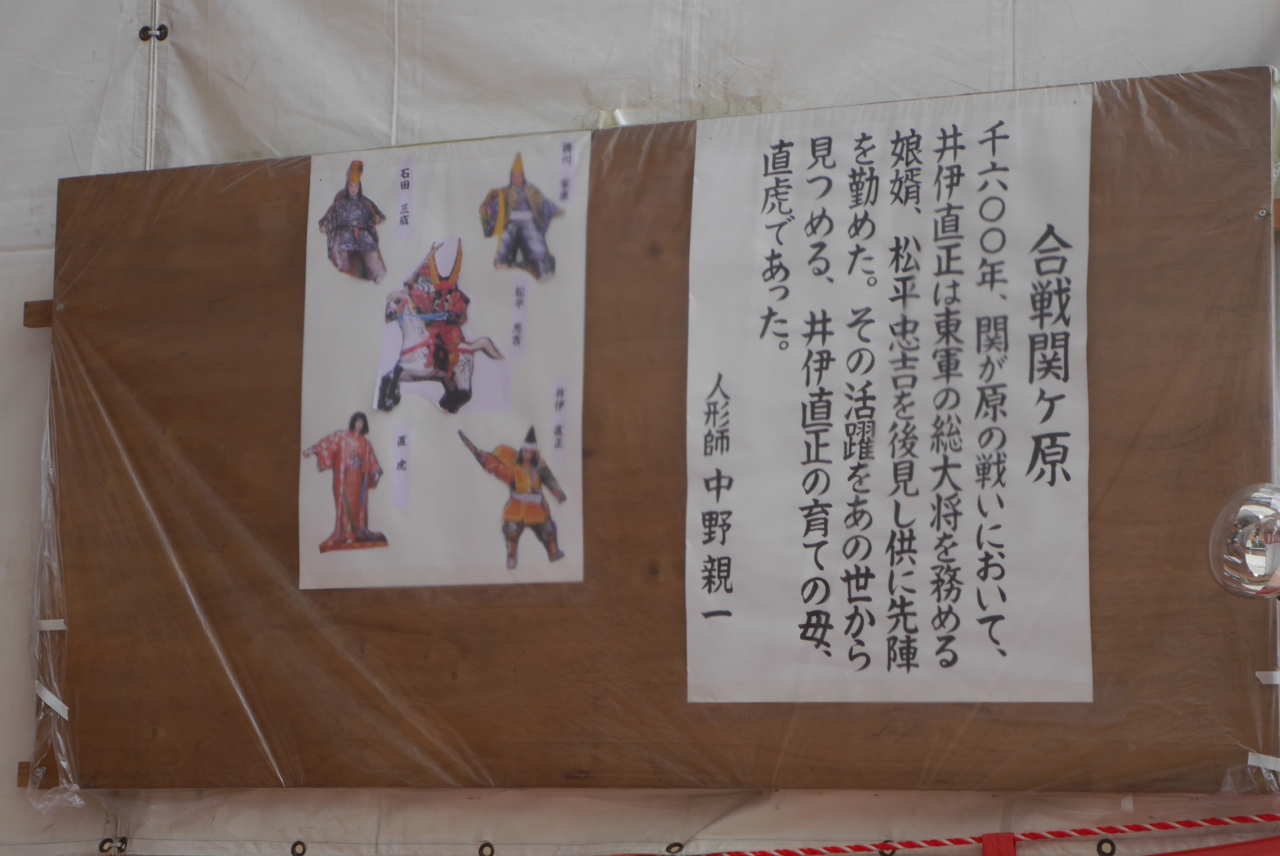 合戦関ケ原
千六〇〇年、関が原の戦いにおいて、
井伊直正は東軍の総大将を務める
娘婿、松平忠吉を後見し供に先陣
を勤めた。その活躍をあの世から
見つめる、井伊直正の育ての母、
直虎であった。
人形師 中野親一
徳川 家康
石田 三成
松平 忠吉
井伊 直正
直虎